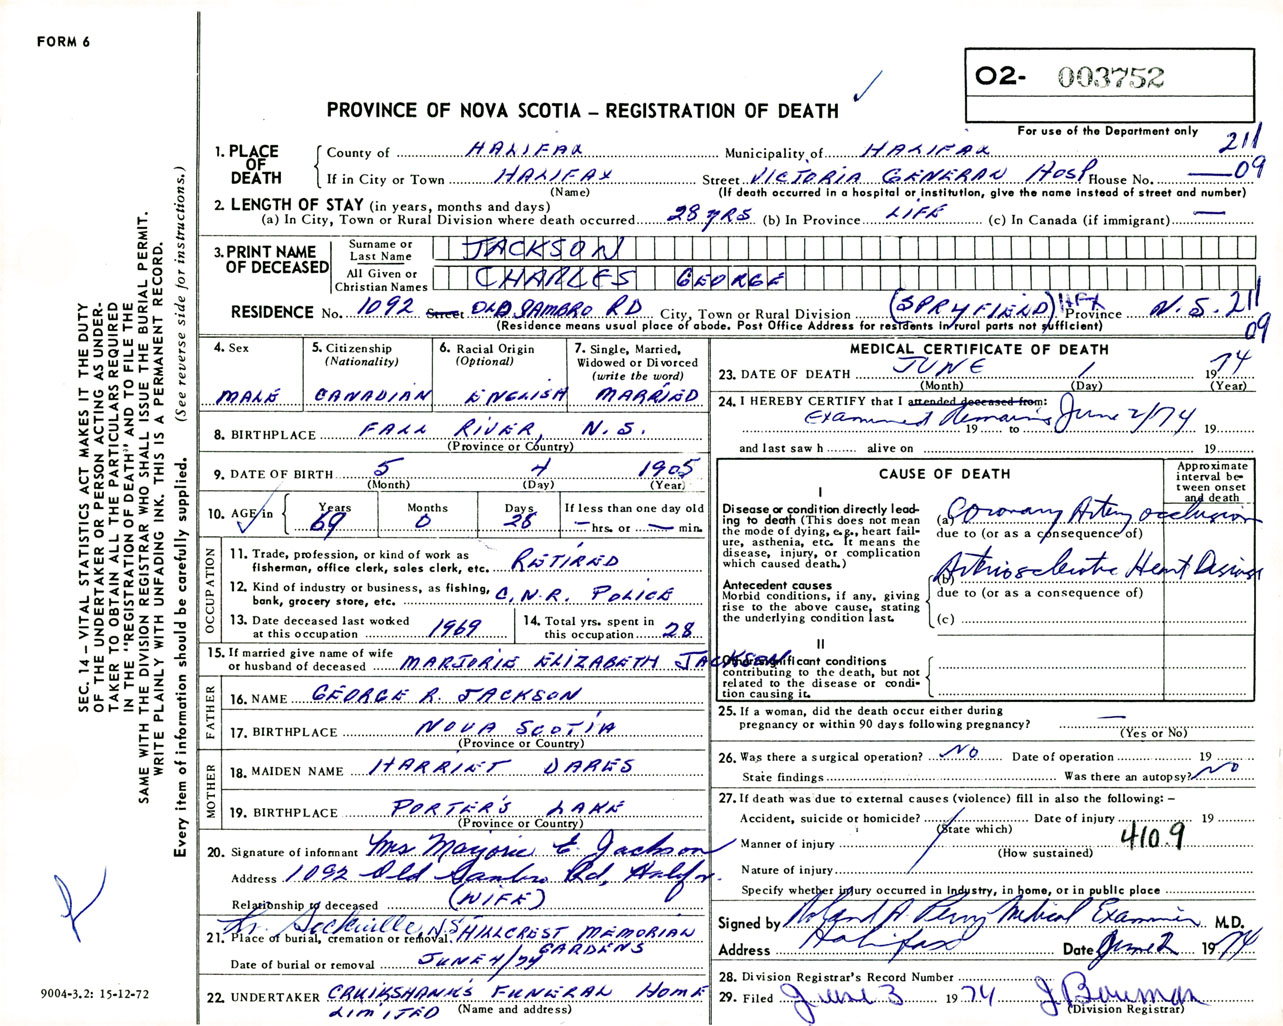 FORM 6
O2- 003752
For use of the Department only
PROVINCE OF NOVA SCOTIA – REGISTRATION OF DEATH
211
09
1. PLACE OF DEATH
County of HALIFAX Municipality of HALIFAX
If in City or Town HALIFAX Street VICTORIA GENERAL HOSP House No. —
(Name) (If death occurred in a hospital or institution, give the name instead of street and number)
2. LENGTH OF STAY (in years, months and days)
(a) In City, Town or Rural Division where death occurred 28 YRS (b) In Province LIFE (c) In Canada (if immigrant) —
3. PRINT NAME OF DECEASED
Surname or Last Name JACKSON
All Given or Christian Names CHARLES GEORGE
RESIDENCE No. 1092 Street OLD SAMBRO RD City, Town or Rural Division (SPRYFIELD) HFX Province N.S. 211
09
(Residence means usual place of abode. Post Office Address for residents in rural parts not sufficient)
4. Sex
MALE
5. Citizenship
(Nationality)
CANADIAN
6. Racial Origin
(Optional)
ENGLISH
7. Single, Married,
Widowed or Divorced
(write the word)
MARRIED
8. BIRTHPLACE FALL RIVER, N.S.
(Province or Country)
9. DATE OF BIRTH 5 4 1905
(Month) (Day) (Year)
10. AGE in
Years Months Days If less than one day old
69 0 28 — hrs. or — min.
OCCUPATION
11. Trade, profession, or kind of work as
fisherman, office clerk, sales clerk, etc. RETIRED
12. Kind of industry or business, as fishing,
bank, grocery store, etc. C.N.R. POLICE
13. Date deceased last worked
at this occupation 1969
14. Total yrs. spent in
this occupation 28
15. If married give name of wife
or husband of deceased MARJORIE ELIZABETH JACKSON
FATHER
16. NAME GEORGE R. JACKSON
17. BIRTHPLACE NOVA SCOTIA
(Province or Country)
MOTHER
18. MAIDEN NAME HARRIET DARES
19. BIRTHPLACE PORTER'S LAKE
(Province or Country)
20. Signature of informant Mrs Marjorie E. Jackson
Address 1092 Old Sambro Rd, Halifax
Relationship to deceased (WIFE)
Lr. Sackville N.S.
21. Place of burial, cremation or removal HILLCREST MEMORIAL
GARDENS
Date of burial or removal JUNE 4/74
22. UNDERTAKER CRUIKSHANK'S FUNERAL HOME
LIMITED (Name and address)
MEDICAL CERTIFICATE OF DEATH
23. DATE OF DEATH JUNE 1 1974
(Month) (Day) (Year)
24. I HEREBY CERTIFY that I attended deceased from:
Examined Remains June 2/74
19 to 19
and last saw h alive on 19
CAUSE OF DEATH
Approximate interval between onset and death
I
Disease or condition directly lead-
ing to death (This does not mean
the mode of dying, e.g., heart fail-
ure, asthenia, etc. It means the
disease, injury, or complication
which caused death.)
(a) Coronary Artery occlusion
due to (or as a consequence of)
Antecedent causes
Morbid conditions, if any, giving
rise to the above cause, stating
the underlying condition last.
(b) Arteriosclerotic Heart Disease
due to (or as a consequence of)
(c)
II
Other significant conditions
contributing to the death, but not
related to the disease or condi-
tion causing it.
25. If a woman, did the death occur either during
pregnancy or within 90 days following pregnancy? —
(Yes or No)
26. Was there a surgical operation? NO Date of operation 19
State findings Was there an autopsy? NO
27. If death was due to external causes (violence) fill in also the following: –
Accident, suicide or homicide? Date of injury 19
(State which)
Manner of injury 410.9
(How sustained)
Nature of injury
Specify whether injury occurred in Industry, in home, or in public place
Signed by Roland A. Perry Medical Examiner M.D.
Address Halifax Date June 2 1974
28. Division Registrar's Record Number
29. Filed June 3 1974 J Bowman
(Division Registrar)
SEC. 14 – VITAL STATISTICS ACT MAKES IT THE DUTY
OF THE UNDERTAKER OR PERSON ACTING AS UNDER-
TAKER TO OBTAIN ALL THE PARTICULARS REQUIRED
IN THE "REGISTRATION OF DEATH" AND TO FILE THE
SAME WITH THE DIVISION REGISTRAR WHO SHALL ISSUE THE BURIAL PERMIT.
WRITE PLAINLY WITH UNFADING INK. THIS IS A PERMANENT RECORD.
Every item of information should be carefully supplied. (See reverse side for instructions.)
9004-3.2: 15-12-72